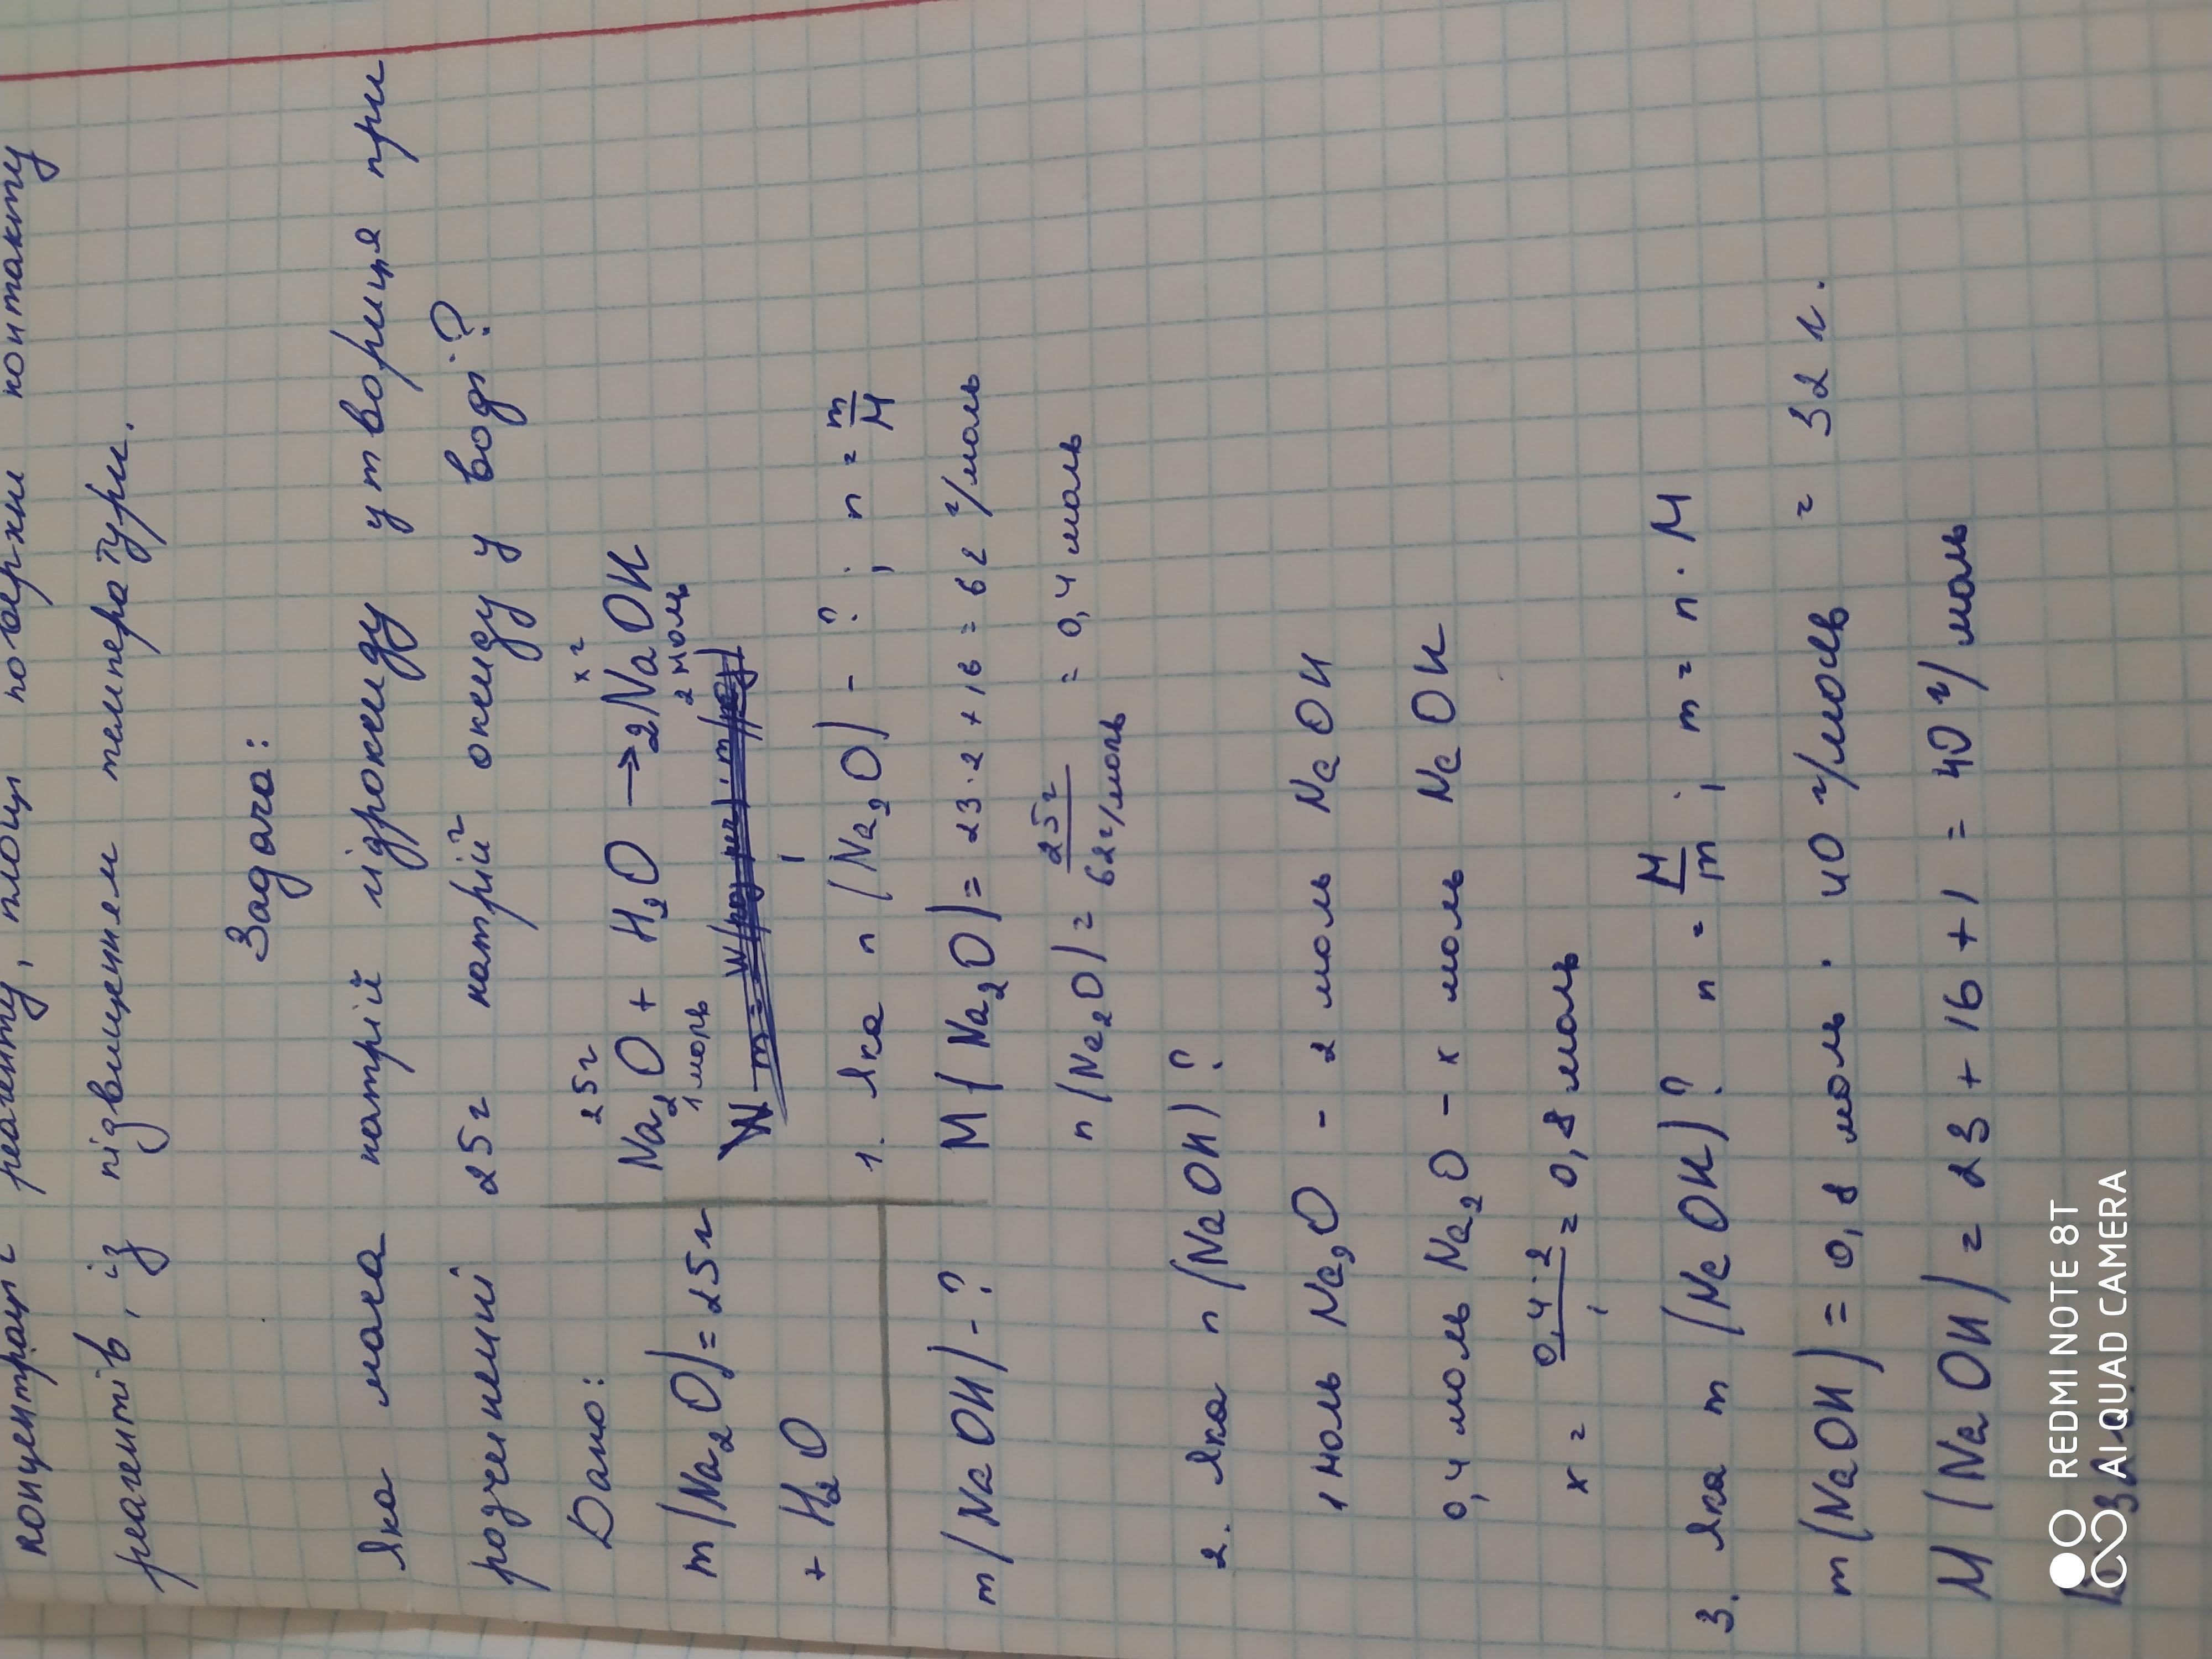 концентрації реагенту, площі поверхні контакту
реагентів, із підвищенням температури.
Задача:
Яка маса натрій гідроксиду утвориця при
розчиненні 25г натрій оксиду у воді?
Дано:
m(Na2O)=25г
+ H2O
m(NaOH)-?
25г xг
Na2O + H2O → 2NaOH
1моль 2моль
1. Яка n(Na2O) - ? ; n = m/M
M(Na2O) = 23·2+16 = 62 г/моль
n(Na2O) = 25г/62г/моль = 0,4 моль
2. Яка n(NaOH)?
1 моль Na2O - 2 моль NaOH
0,4 моль Na2O - x моль NaOH
x = 0,4·2/1 = 0,8 моль
3. Яка m(NaOH)? n = M/m ; m = n · M
m(NaOH) = 0,8 моль · 40 г/моль = 32 г.
M(NaOH) = 23 + 16 + 1 = 40 г/моль
REDMI NOTE 8T
AI QUAD CAMERA